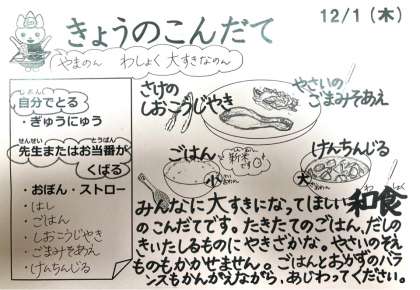 きょうのこんだて
12/1(木)
やまのん わしょく 大すきなのん
じぶん
自分でとる
・ぎゅうにゅう
せんせい とうばん
先生またはお当番が
くばる
・おぼん・ストロー
・はし
・ごはん
・しおこうじやき
・ごまみそあえ
・けんちんじる
さけの
しおこうじやき
やさいの
ごまみそあえ
ごはん
新米です
小
けんちんじる
大
わしょく
みんなに大すきになってほしい和食
のこんだてです。たきたてのごはん、だしの
きいたしるものにやきざかな。やさいのそえ
ものもかかせません。ごはんとおかずのバラ
ンスもかんがえながら、あじわってください。